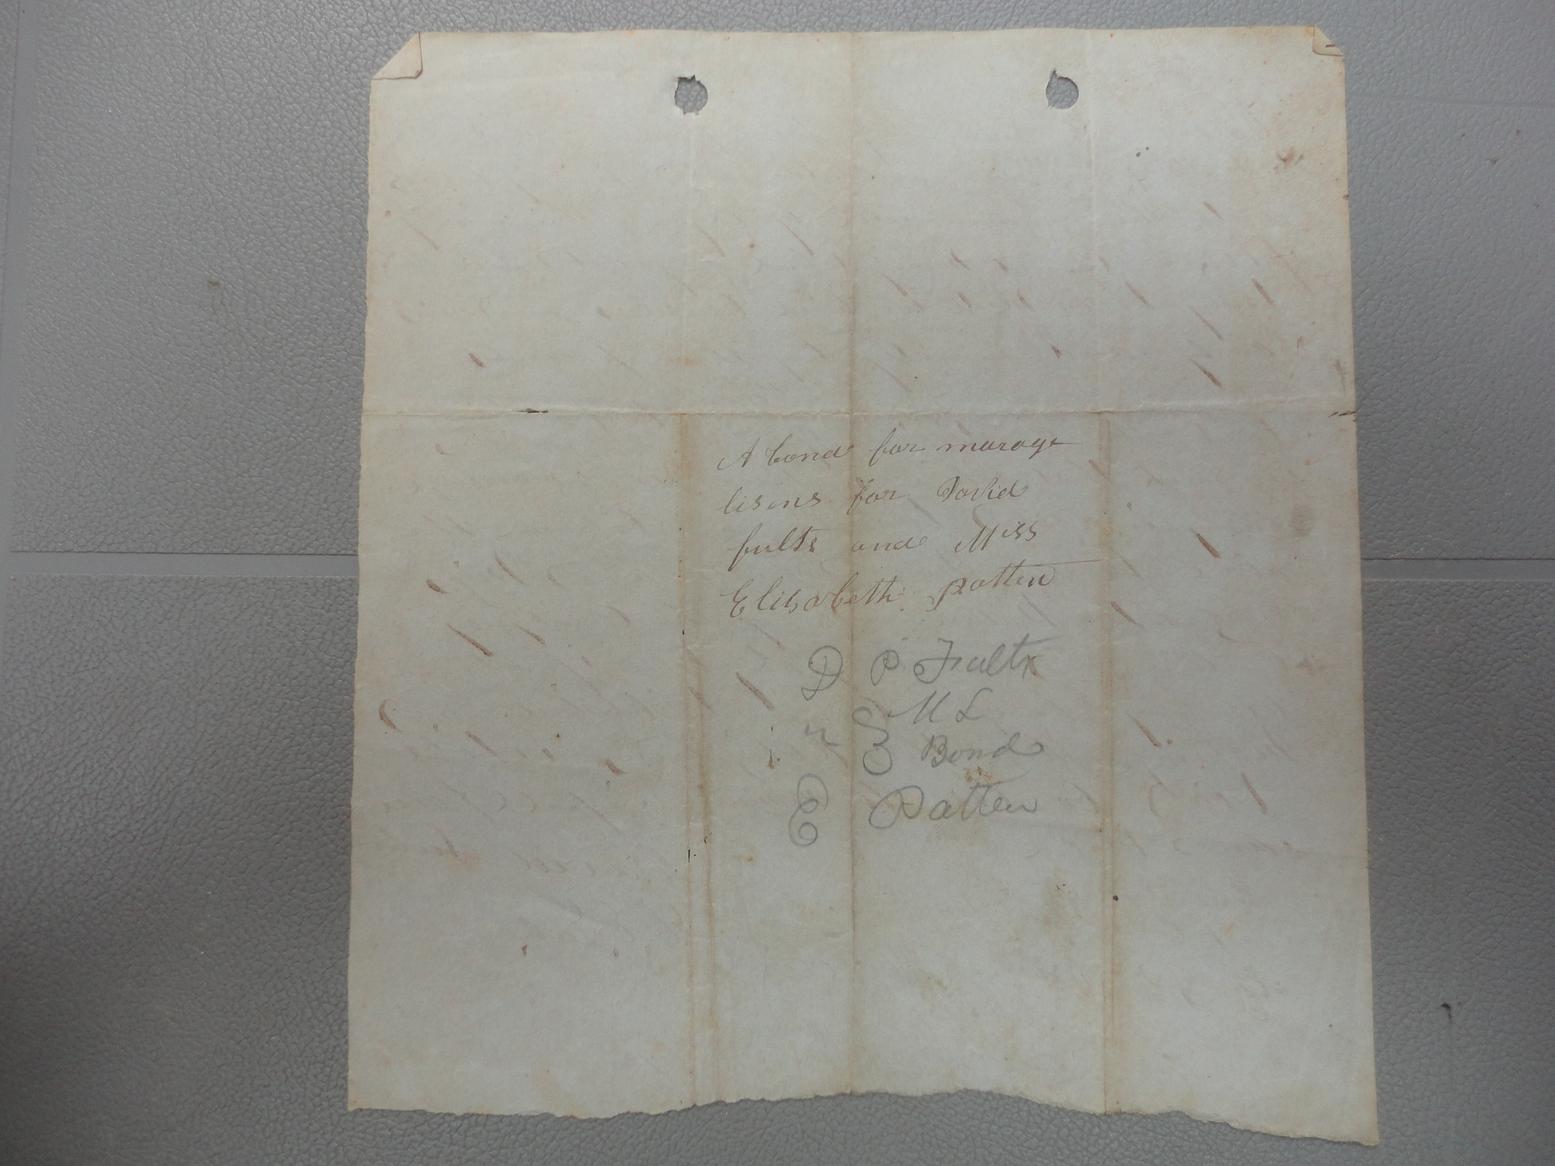 A bond for marage
lisens for David
fults and Miss
Elisabeth patten
D P Fults
M L
Bond
E Patten